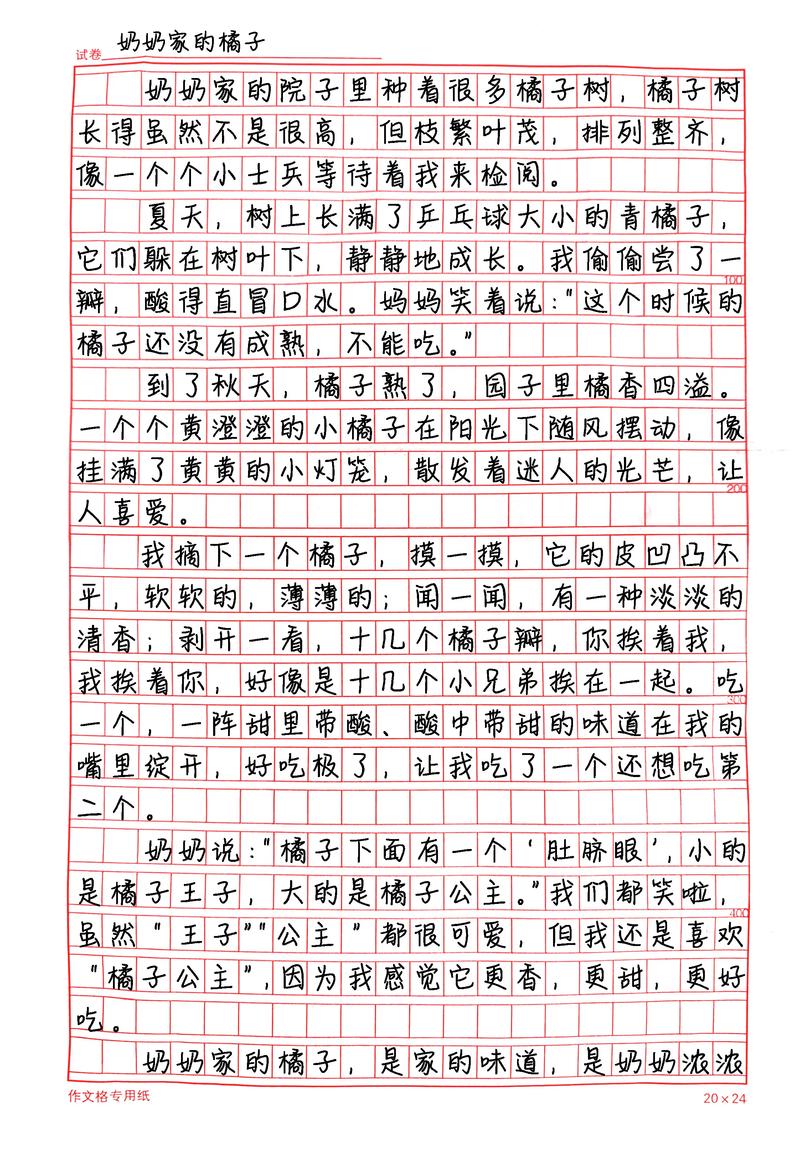 试卷 奶奶家的橘子
奶奶家的院子里种着很多橘子树，橘子树
长得虽然不是很高，但枝繁叶茂，排列整齐，
像一个个小士兵等待着我来检阅。
夏天，树上长满了乒乓球大小的青橘子，
它们躲在树叶下，静静地成长。我偷偷尝了一
100
瓣，酸得直冒口水。妈妈笑着说：“这个时候的
橘子还没有成熟，不能吃。”
到了秋天，橘子熟了，园子里橘香四溢。
一个个黄澄澄的小橘子在阳光下随风摆动，像
挂满了黄黄的小灯笼，散发着迷人的光芒，让
200
人喜爱。
我摘下一个橘子，摸一摸，它的皮凹凸不
平，软软的，薄薄的；闻一闻，有一种淡淡的
清香；剥开一看，十几个橘子瓣，你挨着我，
我挨着你，好像是十几个小兄弟挨在一起。吃
300
一个，一阵甜里带酸、酸中带甜的味道在我的
嘴里绽开，好吃极了，让我吃了一个还想吃第
二个。
奶奶说：“橘子下面有一个‘肚脐眼’，小的
是橘子王子，大的是橘子公主。”我们都笑啦，
400
虽然“王子”“公主”都很可爱，但我还是喜欢
“橘子公主”，因为我感觉它更香，更甜，更好
吃。
奶奶家的橘子，是家的味道，是奶奶浓浓
作文格专用纸 20×24